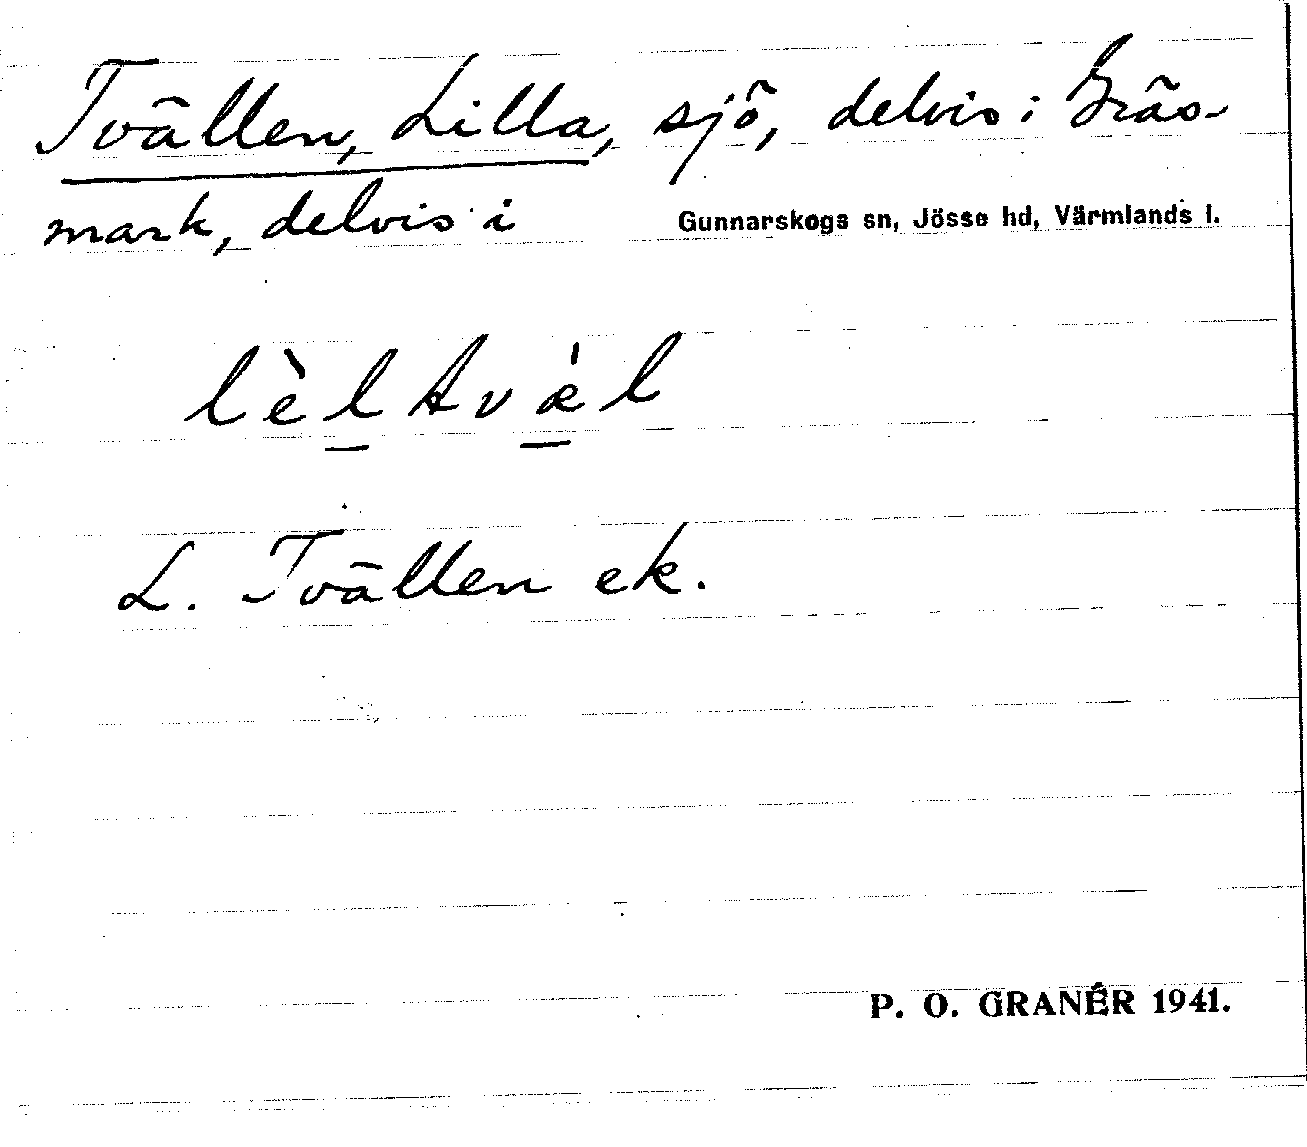 Tvällen, Lilla, sjö, delvis i Gräs-
mark, delvis i Gunnarskogs sn, Jösse hd, Värmlands l.
lèl̲ tvǽ̲l
L. Tvällen ek.
P. O. GRANÉR 1941.